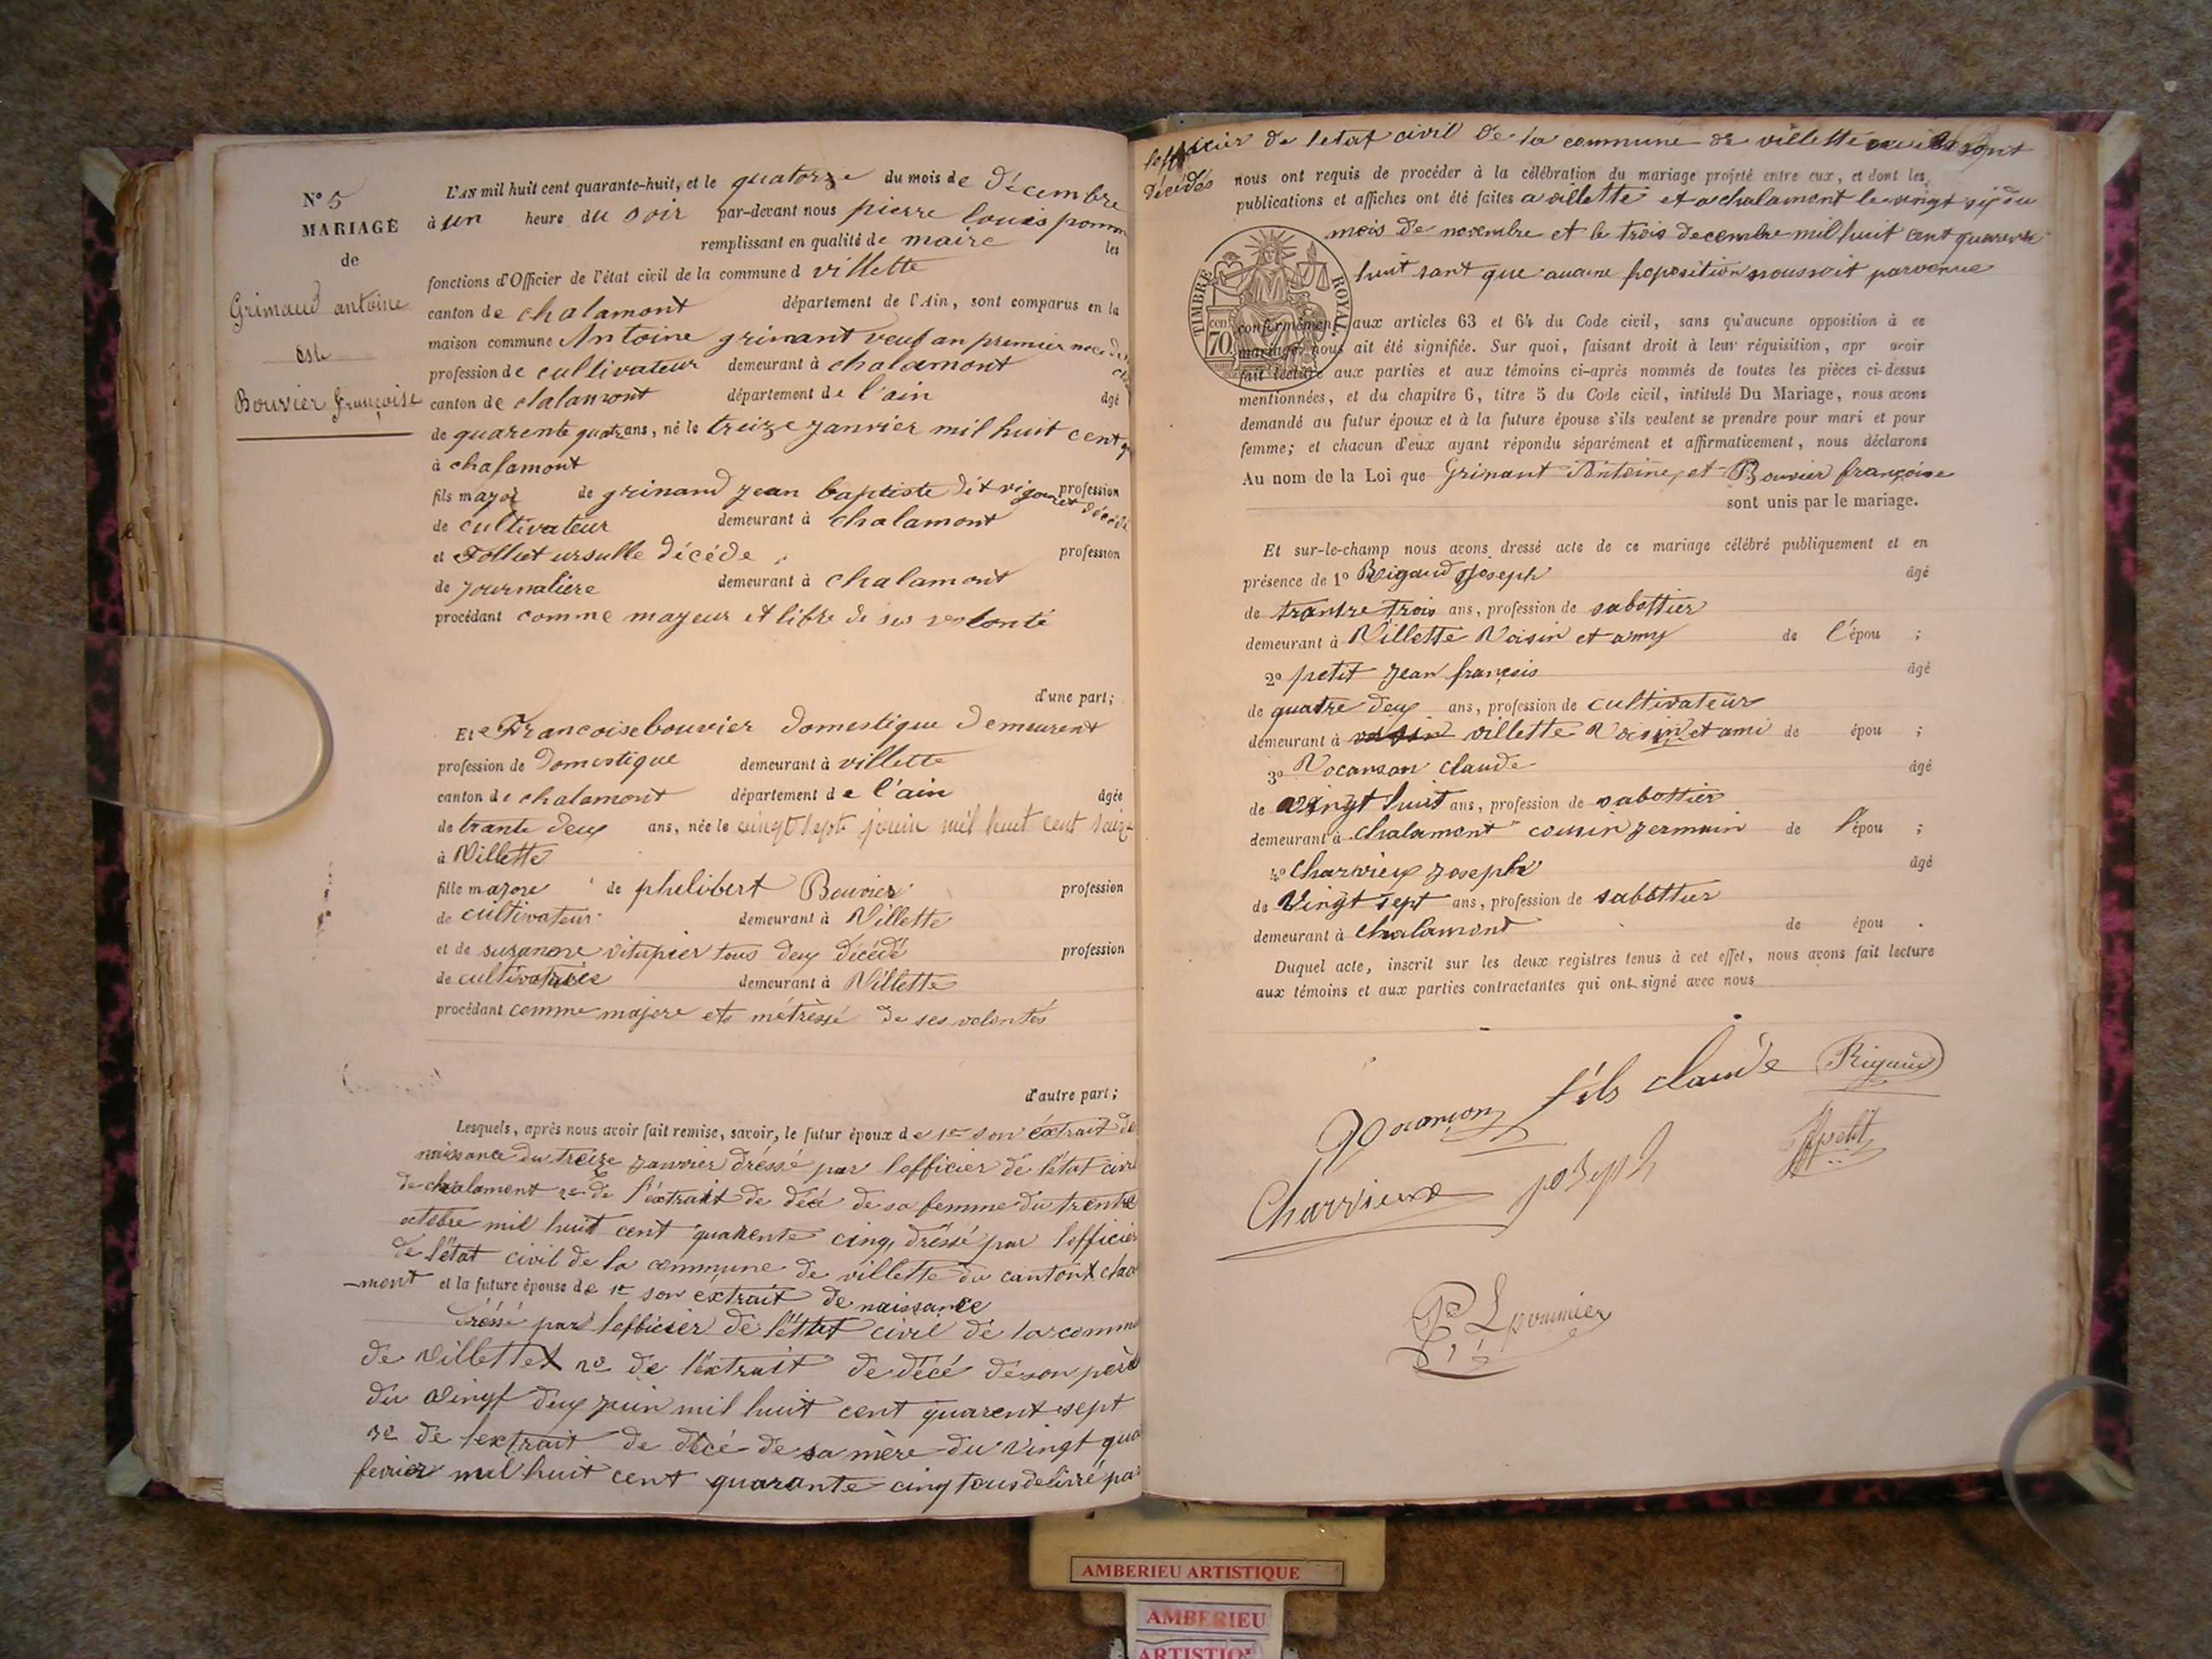 N° 5
MARIAGE
de
Grimaud antoine
Est
Bouvier françoise
L'AN mil huit cent quarante-huit, et le quatorze du mois de Décembre
à un heure du soir par-devant nous pierre louis pomm
remplissant en qualité de maire les
fonctions d'Officier de l'état civil de la commune d villette
canton de chalamont département de l'Ain, sont comparus en la
maison commune Antoine grinant veuf an premier noce
profession de cultivateur demeurant à chalamont
canton de chalamont département de l'ain âgé
de quarente quatre ans, né le treize janvier mil huit cent
à chalamont
fils majeur de grinand jean baptiste dit vigouret décédé profession
de cultivateur demeurant à chalamont
et Follut ursulle décéde profession
de journaliere demeurant à chalamont
procédant comme majeur et libre de ses volonté
d'une part;
Et Francoise bouvier domestique demeurent
profession de domestique demeurant à villette
canton de chalamont département de l'ain âgée
de trante deux ans, née le vingt sept juin mil huit cent seize
à Villette
fille majore de phelibert Bouvier profession
de cultivateur demeurant à Villette
et de suzanne vitupier tous deux décédé profession
de cultivatrice demeurant à Villette
procédant comme majore et métrèssé de ses volontés
d'autre part;
Lesquels, après nous avoir fait remise, savoir, le futur époux de 1er son éxtrait de
naissance du treize janvier dréssé par l'officier de l'état civil
de chalamont 2e de l'éxtrait de décé de sa femme du trentre
octobre mil huit cent quarente cinq, dréssé par l'officier
de l'état civil de la commune de villette du canton chala
-mont et la future épouse de 1er son éxtrait de naissance
dréssé par l'officier de l'éttat civil de la comm
de villette 2e de l'éxtrait de décé de son père
du vingt deux juin mil huit cent quarent sept
3e de l'extrait de décé de sa mère du vingt qua
fevrier mil huit cent quarante cinq tous delivré par
l'officier de l'etat civil de la commune de villette ou ils sont
décédés nous ont requis de procéder à la célébration du mariage projeté entre eux, et dont les
publications et affiches ont été faites a villette et a chalamont le vingt six du
mois de novembre et le trois decembre mil huit cent quarente
huit sant que aucune proposition nous soit parvenue
TIMBRE ROYAL
cent. 70
conformément aux articles 63 et 64 du Code civil, sans qu'aucune opposition à ce
mariage nous ait été signifiée. Sur quoi, faisant droit à leur réquisition, apr avoir
fait lecture aux parties et aux témoins ci-après nommés de toutes les pièces ci-dessus
mentionnées, et du chapitre 6, titre 5 du Code civil, intitulé Du Mariage, nous avons
demandé au futur époux et à la future épouse s'ils veulent se prendre pour mari et pour
femme; et chacun d'eux ayant répondu séparément et affirmativement, nous déclarons
Au nom de la Loi que Grinant Antoine, et Bouvier françoise
sont unis par le mariage.
Et sur-le-champ nous avons dressé acte de ce mariage célébré publiquement et en
présence de 1° Rigaud Joseph âgé
de trantre trois ans, profession de sabottier
demeurant à Villette Voisin et amy de l'épou ;
2° petit jean françois âgé
de quatre deux ans, profession de cultivateur
demeurant à voisin villette Voisin et ami de épou ;
3° Vocanson claude âgé
de vingt huit ans, profession de sabottier
demeurant à chalamont cousin jermain de l'épou ;
4° Charrieux joseph âgé
de Vingt sept ans, profession de sabottier
demeurant à chalamont de épou .
Duquel acte, inscrit sur les deux registres tenus à cet effet, nous avons fait lecture
aux témoins et aux parties contractantes qui ont signé avec nous
Vocanson fils claude Rigaud
Charrieux joseph petit
P L pommier
AMBERIEU ARTISTIQUE
AMBERIEU
ARTISTIQ